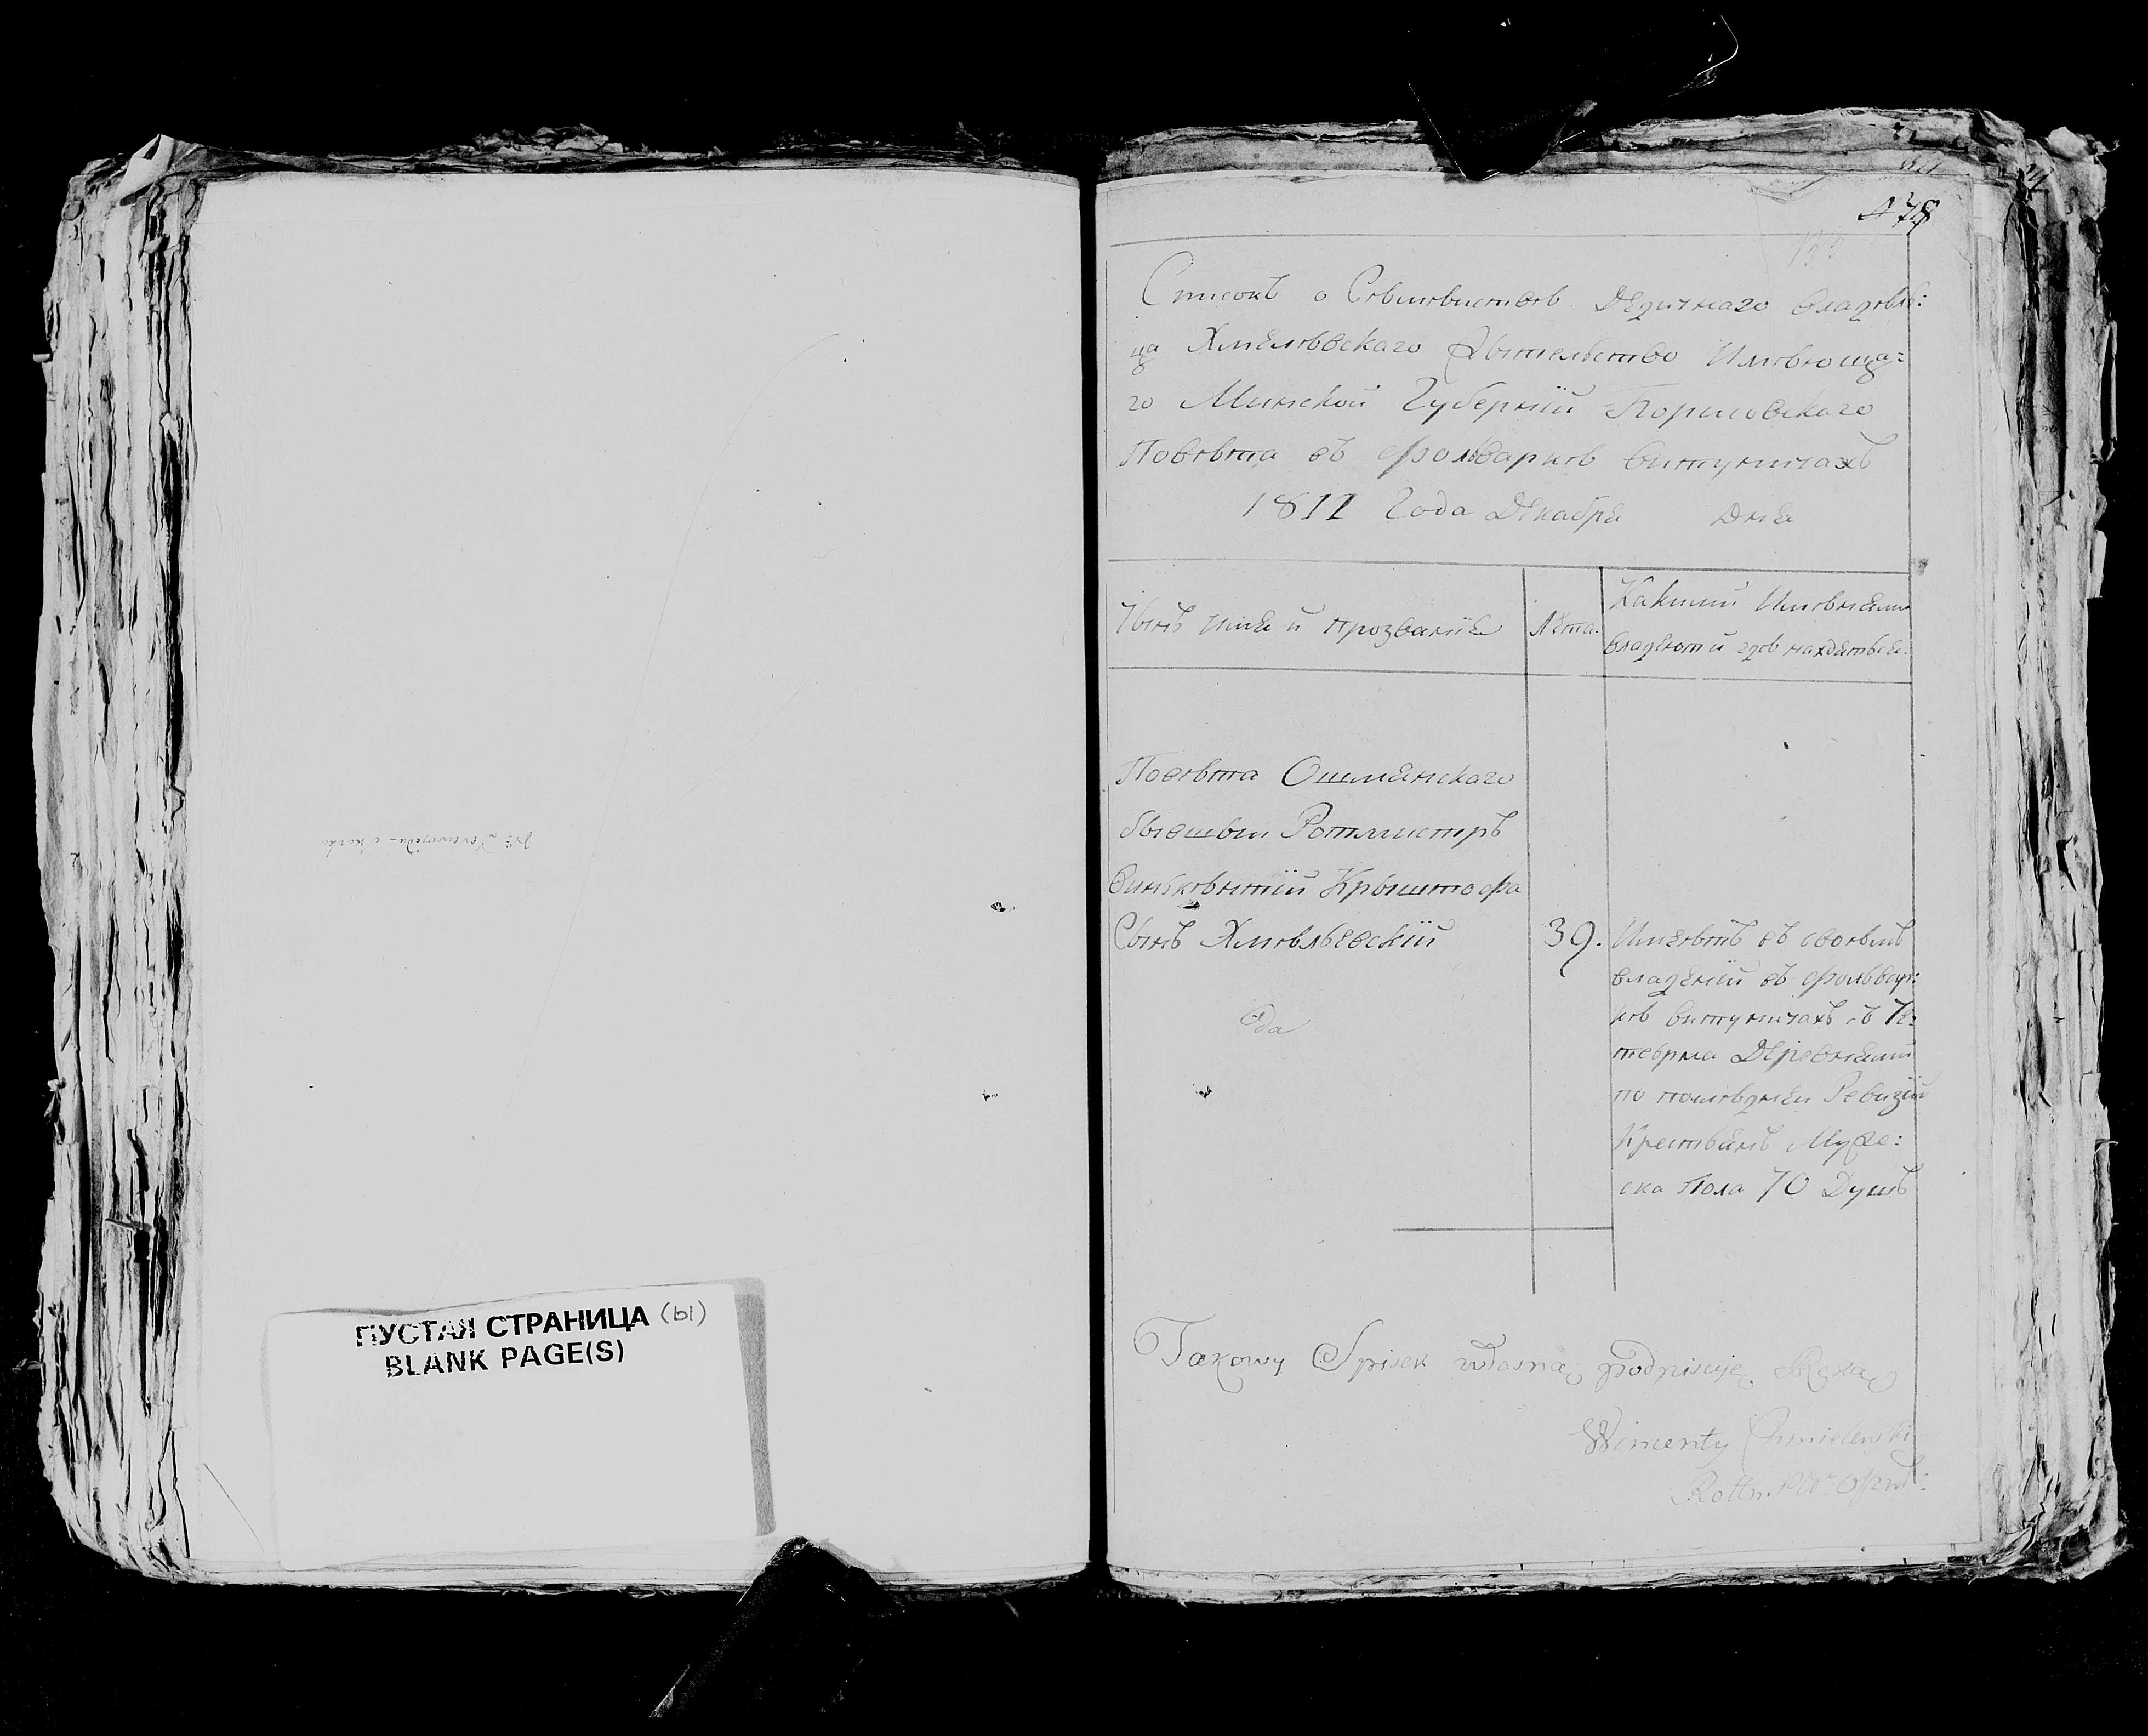 ПУСТАЯ СТРАНИЦА (ы)
BLANK PAGE(S)
478
Списокъ о Дедичнаго владѣль:
ца Хмѣлѣвскаго Жытельство Имѣюща=
го Минской Губерніи Борисовскаго
Повѣта въ фолваркѣ Витуничахъ
1811 Года Декабря Дня
Чынъ имя и прозваніе
Лѣта.
Какими Имѣніями
владеют и гдѣ находяться.
Повѣта Ошмянскаго
бывшый Ротмистръ
Винцентій Крыштофа
Сынъ Хмѣлѣвскій
39.
Имеѣтъ въ своѣмъ
владеніи въ фольвар:
кѣ Витуничахъ съ Че:
тырма Деревнями
по последней Ревизіи
Крестьянъ Муже:
ска Пола 70 Душъ
Takowy Spisek własną podpisuję Ręką
Wincenty Chmielewski
Rottm. Ptu Oszm: